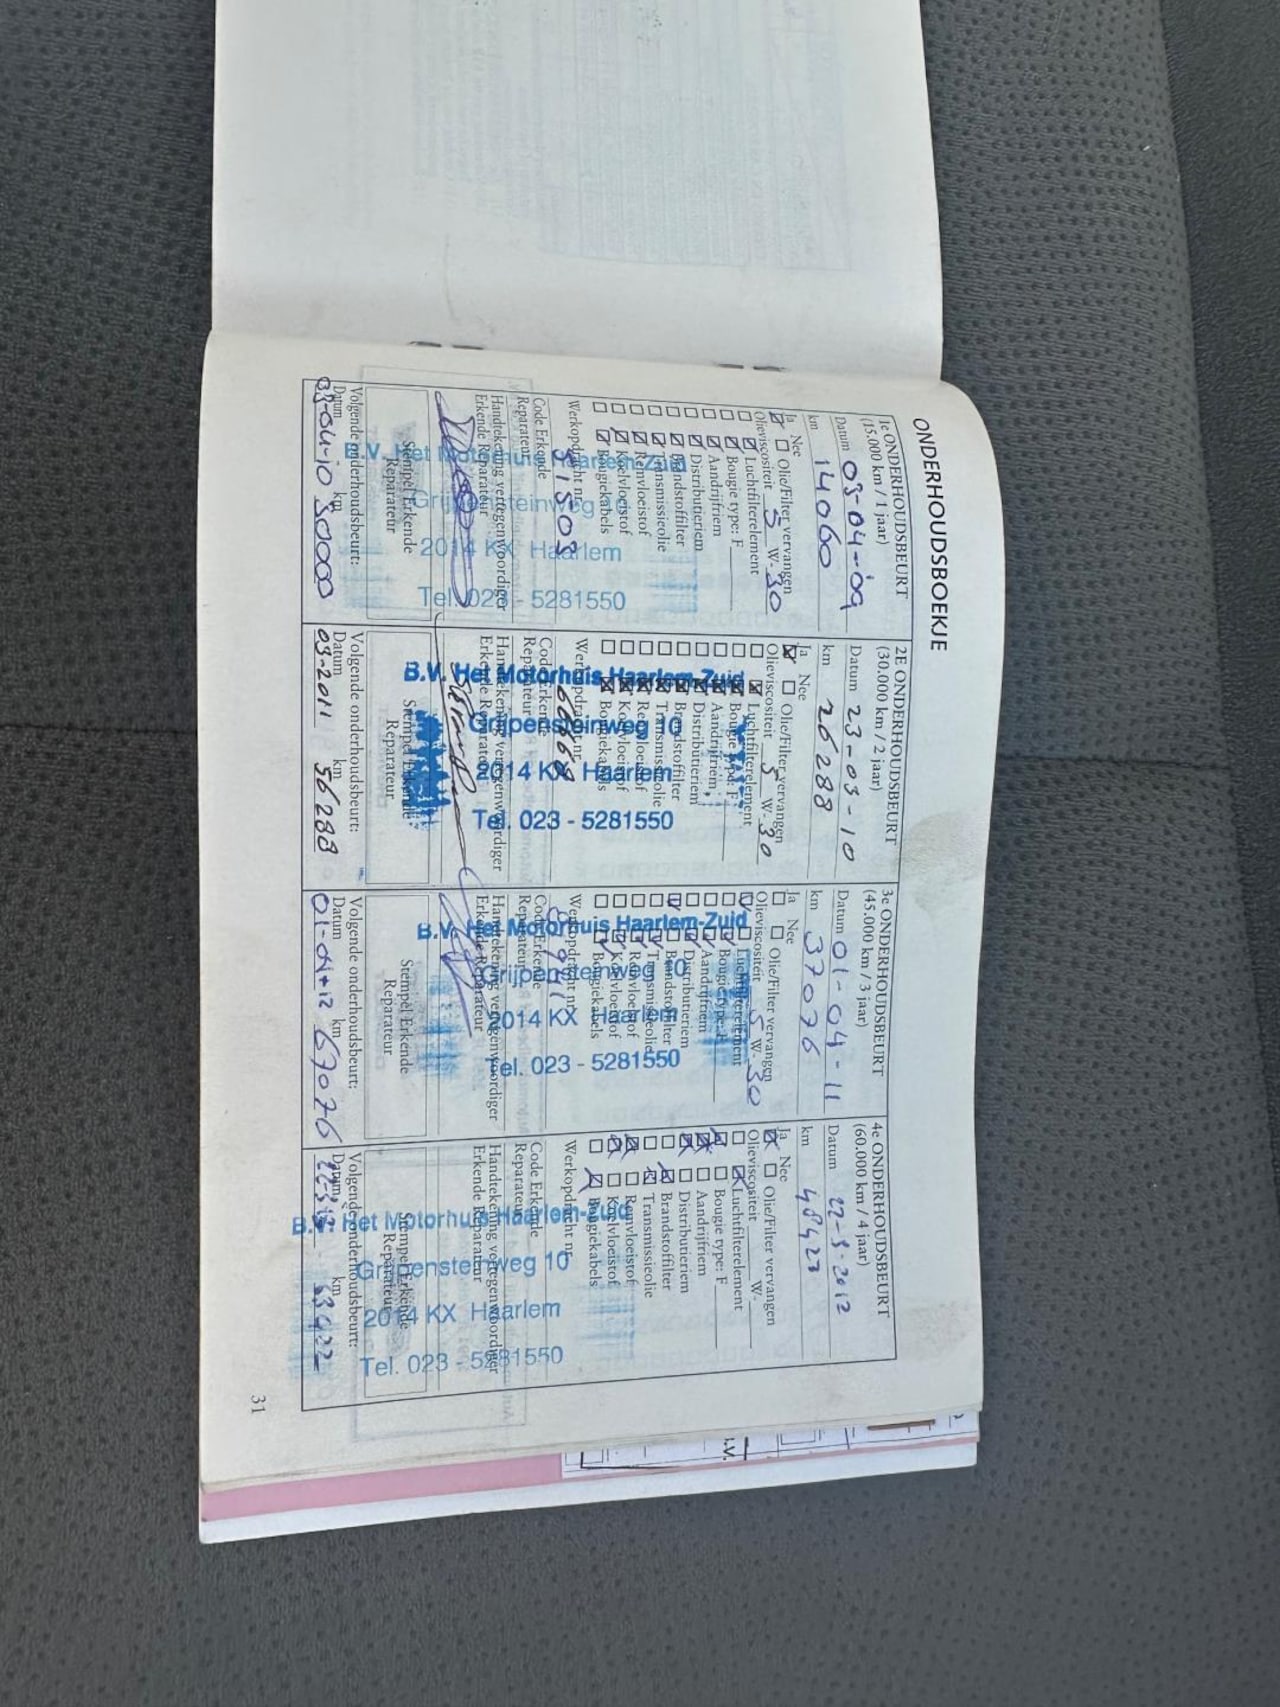 ONDERHOUDSBOEKJE
1e ONDERHOUDSBEURT
(15.000 km / 1 jaar)
Datum 03-04-'09
km 14060
Ja Nee
Olie/Filter vervangen
Olieviscositeit 5 W- 30
Luchtfilterelement
Bougie type: F
Aandrijfriem
Distributieriem
Brandstoffilter
Transmissieolie
Remvloeistof
Koelvloeistof
Bougiekabels
Werkopdracht nr. 51503
Code Erkende
Reparateur
Handtekening vertegenwoordiger
Erkende Reparateur
B.V. Het Motorhuis Haarlem-Zuid
Grijpensteinweg 10
2014 KX Haarlem
Tel. 023 - 5281550
Stempel Erkende
Reparateur
Volgende onderhoudsbeurt:
Datum km
03-04-10 30000
2E ONDERHOUDSBEURT
(30.000 km / 2 jaar)
Datum 23-03-10
km 26288
Ja Nee
Olie/Filter vervangen
Olieviscositeit 5 W- 30
Luchtfilterelement
Bougie type: F
Aandrijfriem
Distributieriem
Brandstoffilter
Transmissieolie
Remvloeistof
Koelvloeistof
Bougiekabels
Werkopdracht nr.
Code Erkende
Reparateur
Handtekening vertegenwoordiger
Erkende Reparateur
B.V. Het Motorhuis Haarlem-Zuid
Grijpensteinweg 10
2014 KX Haarlem
Tel. 023 - 5281550
Stempel Erkende
Reparateur
Volgende onderhoudsbeurt:
Datum km
03-2011 56288
3e ONDERHOUDSBEURT
(45.000 km / 3 jaar)
Datum 01-04-11
km 37076
Ja Nee
Olie/Filter vervangen
Olieviscositeit 5 W- 30
Luchtfilterelement
Bougie type: F
Aandrijfriem
Distributieriem
Brandstoffilter
Transmissieolie
Remvloeistof
Koelvloeistof
Bougiekabels
Werkopdracht nr.
Code Erkende
Reparateur
Handtekening vertegenwoordiger
Erkende Reparateur
B.V. Het Motorhuis Haarlem-Zuid
Grijpensteinweg 10
2014 KX Haarlem
Tel. 023 - 5281550
Stempel Erkende
Reparateur
Volgende onderhoudsbeurt:
Datum km
01-04-12 67076
4e ONDERHOUDSBEURT
(60.000 km / 4 jaar)
Datum 22-3-2012
km
Ja Nee
Olie/Filter vervangen
Olieviscositeit W-
Luchtfilterelement
Bougie type: F
Aandrijfriem
Distributieriem
Brandstoffilter
Transmissieolie
Remvloeistof
Koelvloeistof
Bougiekabels
Werkopdracht nr.
Code Erkende
Reparateur
Handtekening vertegenwoordiger
Erkende Reparateur
B.V. Het Motorhuis Haarlem-Zuid
Grijpensteinweg 10
2014 KX Haarlem
Tel. 023 - 5281550
Stempel Erkende
Reparateur
Volgende onderhoudsbeurt:
Datum km
31